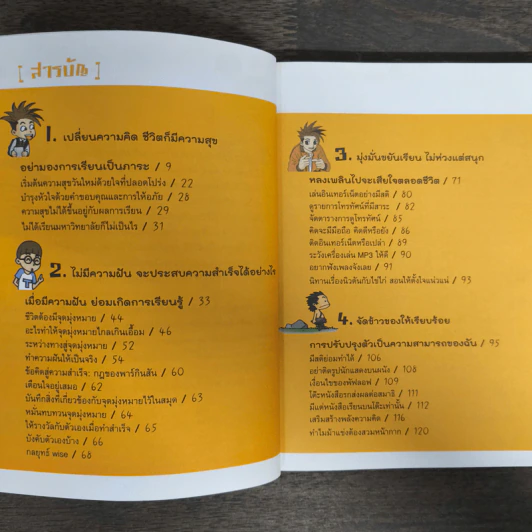 [ สารบัน ]
1. เปลี่ยนความคิด ชีวิตก็มีความสุข
อย่ามองการเรียนเป็นภาระ / 9
เริ่มต้นความสุขวันใหม่ด้วยใจที่ปลอดโปร่ง / 22
บำรุงหัวใจด้วยคำขอบคุณและการให้อภัย / 28
ความสุขไม่ได้ขึ้นอยู่กับผลการเรียน / 29
ไม่ได้เรียนมหาวิทยาลัยก็ไม่เป็นไร / 31
2. ไม่มีความฝัน จะประสบความสำเร็จได้อย่างไร
เมื่อมีความฝัน ย่อมเกิดการเรียนรู้ / 33
ชีวิตต้องมีจุดมุ่งหมาย / 44
อะไรทำให้จุดมุ่งหมายไกลเกินเอื้อม / 46
ระหว่างทางสู่จุดมุ่งหมาย / 52
ทำความฝันให้เป็นจริง / 54
ข้อคิดสู่ความสำเร็จ: กฎของพาร์กินสัน / 60
เตือนใจอยู่เสมอ / 62
บันทึกสิ่งที่เกี่ยวข้องกับจุดมุ่งหมายไว้ในสมุด / 63
หมั่นทบทวนจุดมุ่งหมาย / 64
ให้รางวัลกับตัวเองเมื่อทำสำเร็จ / 65
บังคับตัวเองบ้าง / 66
กลยุทธ์ wise / 68
3. มุ่งมั่นขยันเรียน ไม่ห่วงแต่สนุก
หลงเพลินไปจะเสียใจตลอดชีวิต / 71
เล่นอินเทอร์เน็ตอย่างมีสติ / 80
ดูรายการโทรทัศน์ที่มีสาระ / 82
จัดตารางการดูโทรทัศน์ / 85
คิดจะมีมือถือ คิดดีหรือยัง / 86
ติดอินเทอร์เน็ตหรือเปล่า / 89
ระวังเครื่องเล่น MP3 ให้ดี / 90
อยากฟังเพลงจังเลย / 91
นิทานเรื่องนิวตันกับไข่ไก่ สอนให้ตั้งใจแน่วแน่ / 93
4. จัดข้าวของให้เรียบร้อย
การปรับปรุงตัวเป็นความสามารถของฉัน / 95
มีสติย่อมทำได้ / 106
อย่าติดรูปนักแสดงบนผนัง / 108
เงื่อนไขของพัฟลอฟ / 109
โต๊ะหนังสือรกส่งผลต่อสมาธิ / 111
มีแต่หนังสือเรียนบนโต๊ะเท่านั้น / 112
เสริมสร้างพลังความคิด / 116
ทำไมม้าแข่งต้องสวมหน้ากาก / 120